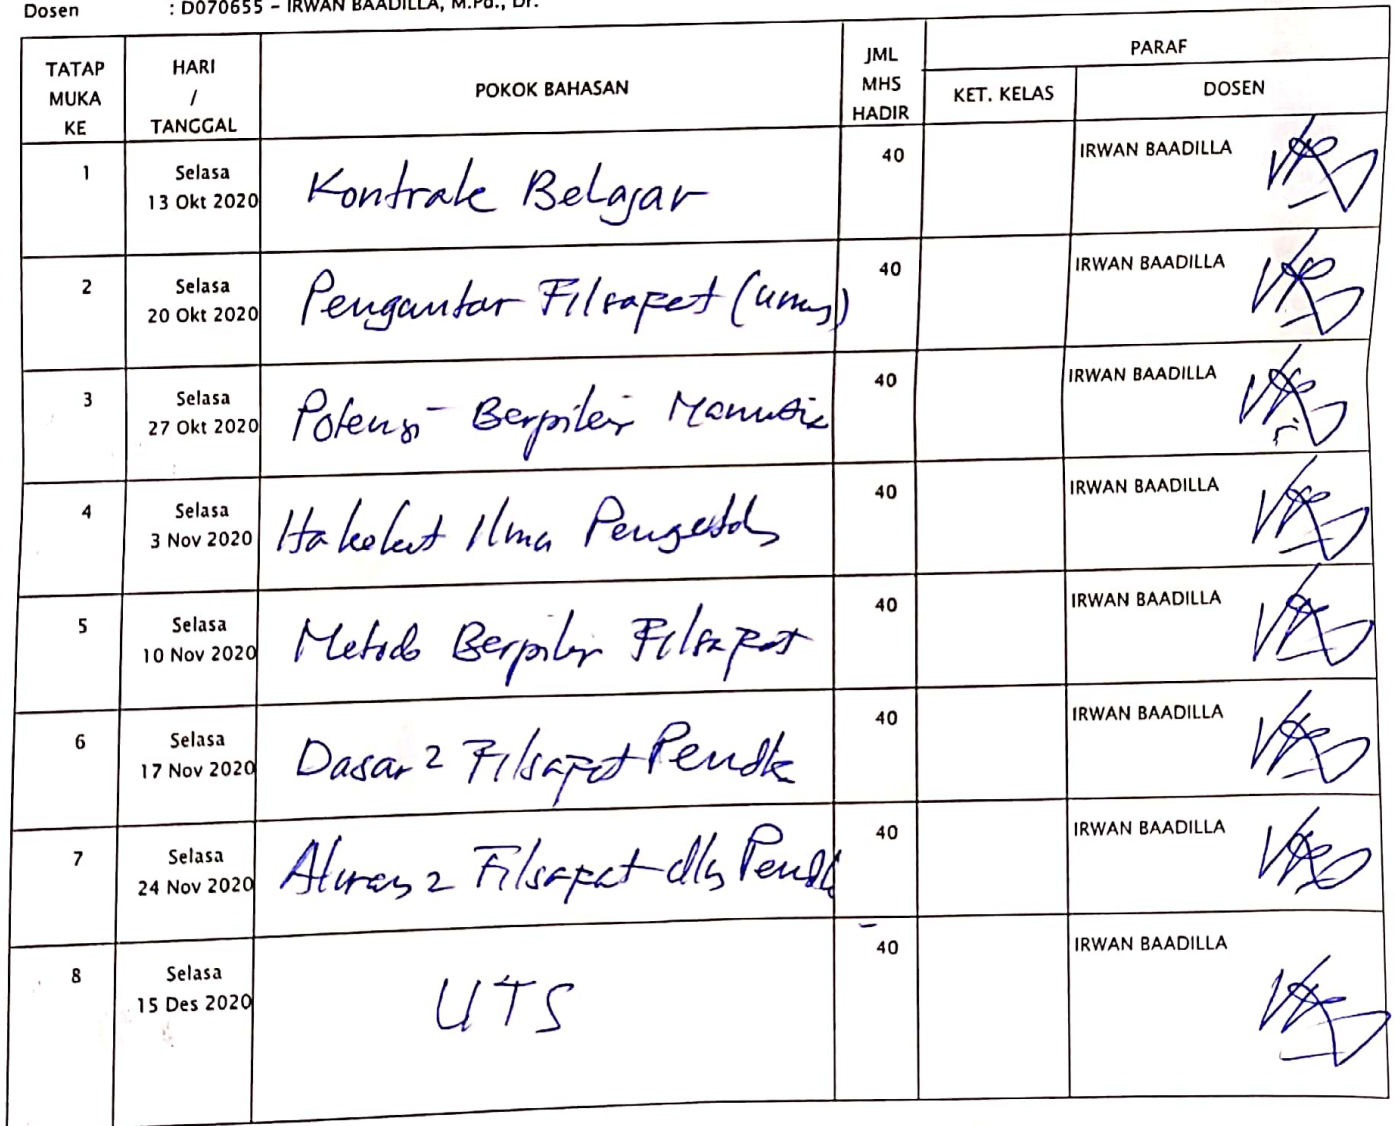 Dosen : D070655 - IRWAN BAADILLA, M.Pd., Dr.
TATAP MUKA KE HARI / TANGGAL POKOK BAHASAN JML MHS HADIR PARAF
KET. KELAS DOSEN
1 Selasa 13 Okt 2020 Kontrak Belajar 40 IRWAN BAADILLA
2 Selasa 20 Okt 2020 Pengantar Filsapat 40 IRWAN BAADILLA
3 Selasa 27 Okt 2020 Potensi Berpikir Manusia 40 IRWAN BAADILLA
4 Selasa 3 Nov 2020 Hakekat Ilmu 40 IRWAN BAADILLA
5 Selasa 10 Nov 2020 Metode Berpikir Filsapat 40 IRWAN BAADILLA
6 Selasa 17 Nov 2020 Dasar2 Filsapat Pendk 40 IRWAN BAADILLA
7 Selasa 24 Nov 2020 Aliran2 Filsapat dlm Pendk 40 IRWAN BAADILLA
8 Selasa 15 Des 2020 UTS 40 IRWAN BAADILLA